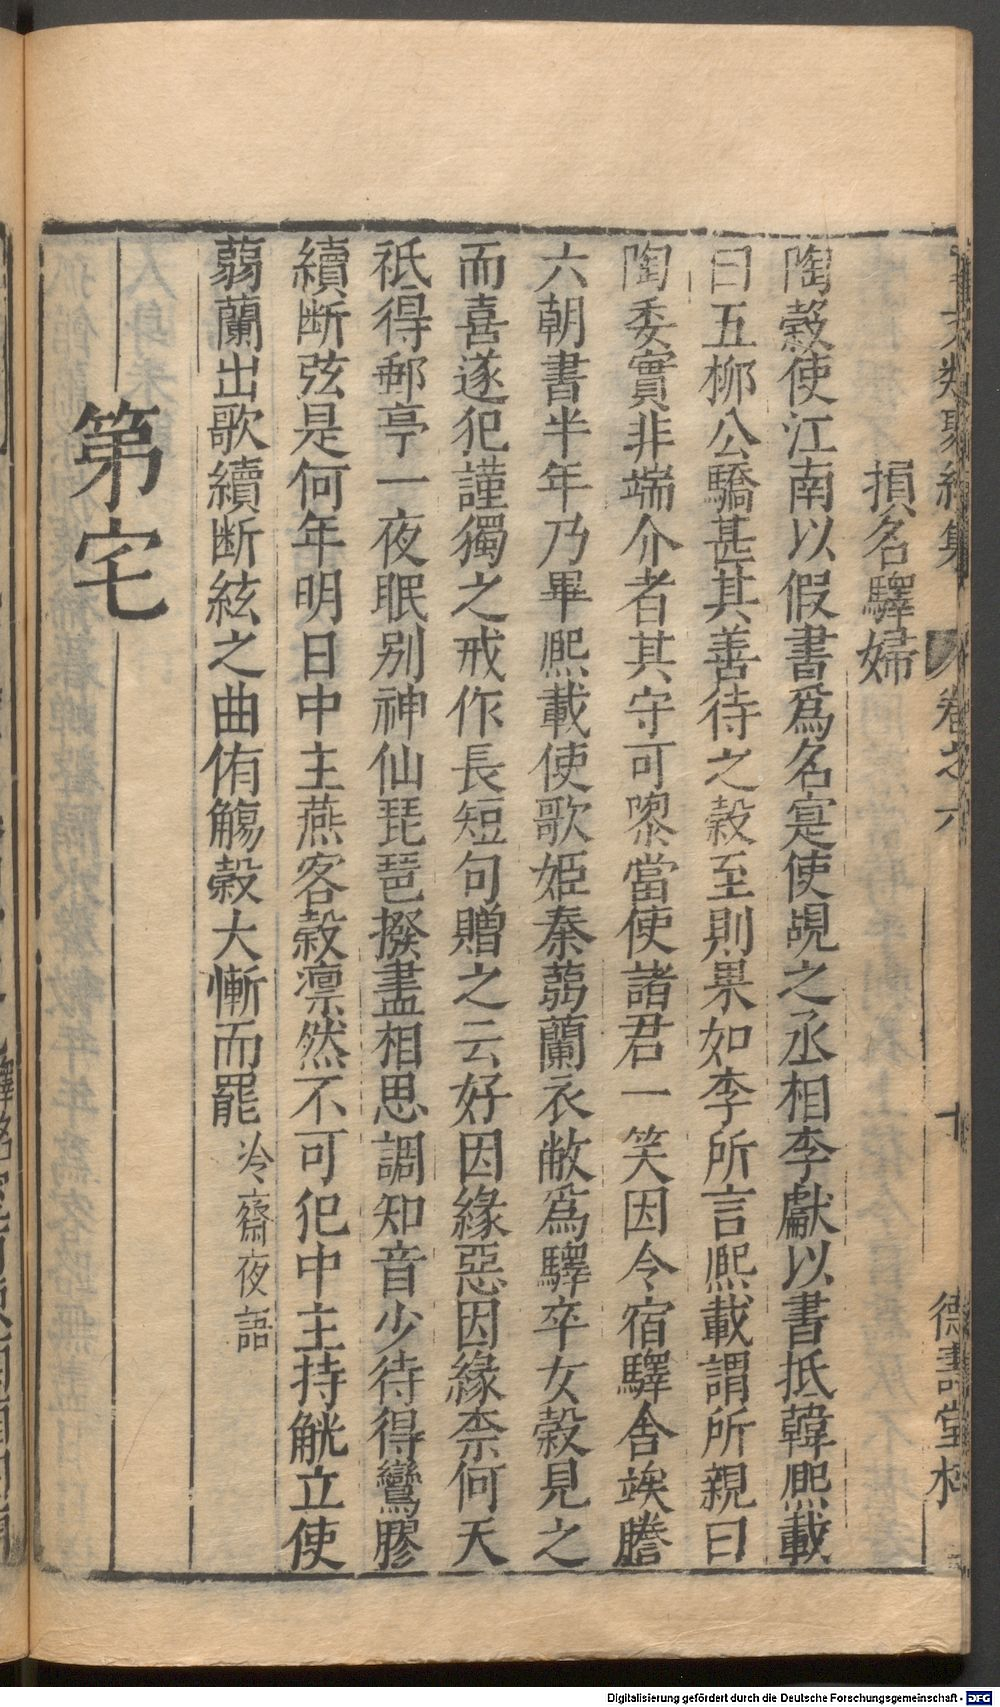 事文類聚續集 卷之六 十 德壽堂梓
損名驛婦
陶穀使江南以假書爲名寔使覘之丞相李獻以書抵韓熙載
曰五柳公驕甚其善待之穀至則果如李所言熙載謂所親曰
陶委實非端介者其守可隳當使諸君一笑因令宿驛舍俟謄
六朝書半年乃畢熙載使歌姬秦蒻蘭衣敝爲驛卒女穀見之
而喜遂犯謹獨之戒作長短句贈之云好因緣惡因緣柰何天
祗得郵亭一夜眠别神仙琵琶撥盡相思調知音少待得鸞膠
續断弦是何年明日中主燕客穀凛然不可犯中主持觥立使
蒻蘭出歌續断絃之曲侑觴穀大慚而罷 冷齋夜語
第宅